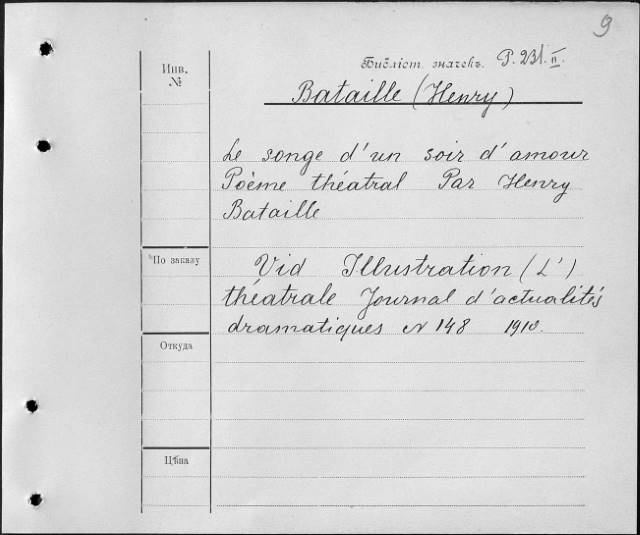 9
Библіот. значекъ P. 231. II.
Инв.
№
Bataille (Henry)
Le songe d'un soir d'amour
Poème théatral Par Henry
Bataille
По заказу
Vid Illustration (L')
théatrale Journal d'actualités
dramatiques N 148 1910.
Откуда
Цѣна